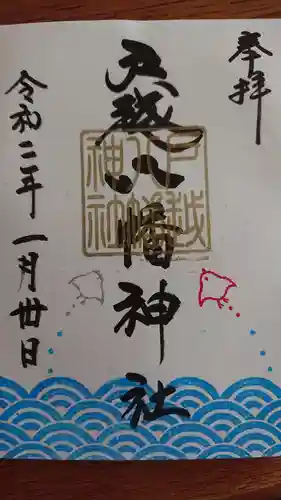 奉拝
戸越八幡神社
戸越
八幡
神社
令和二年一月卅日